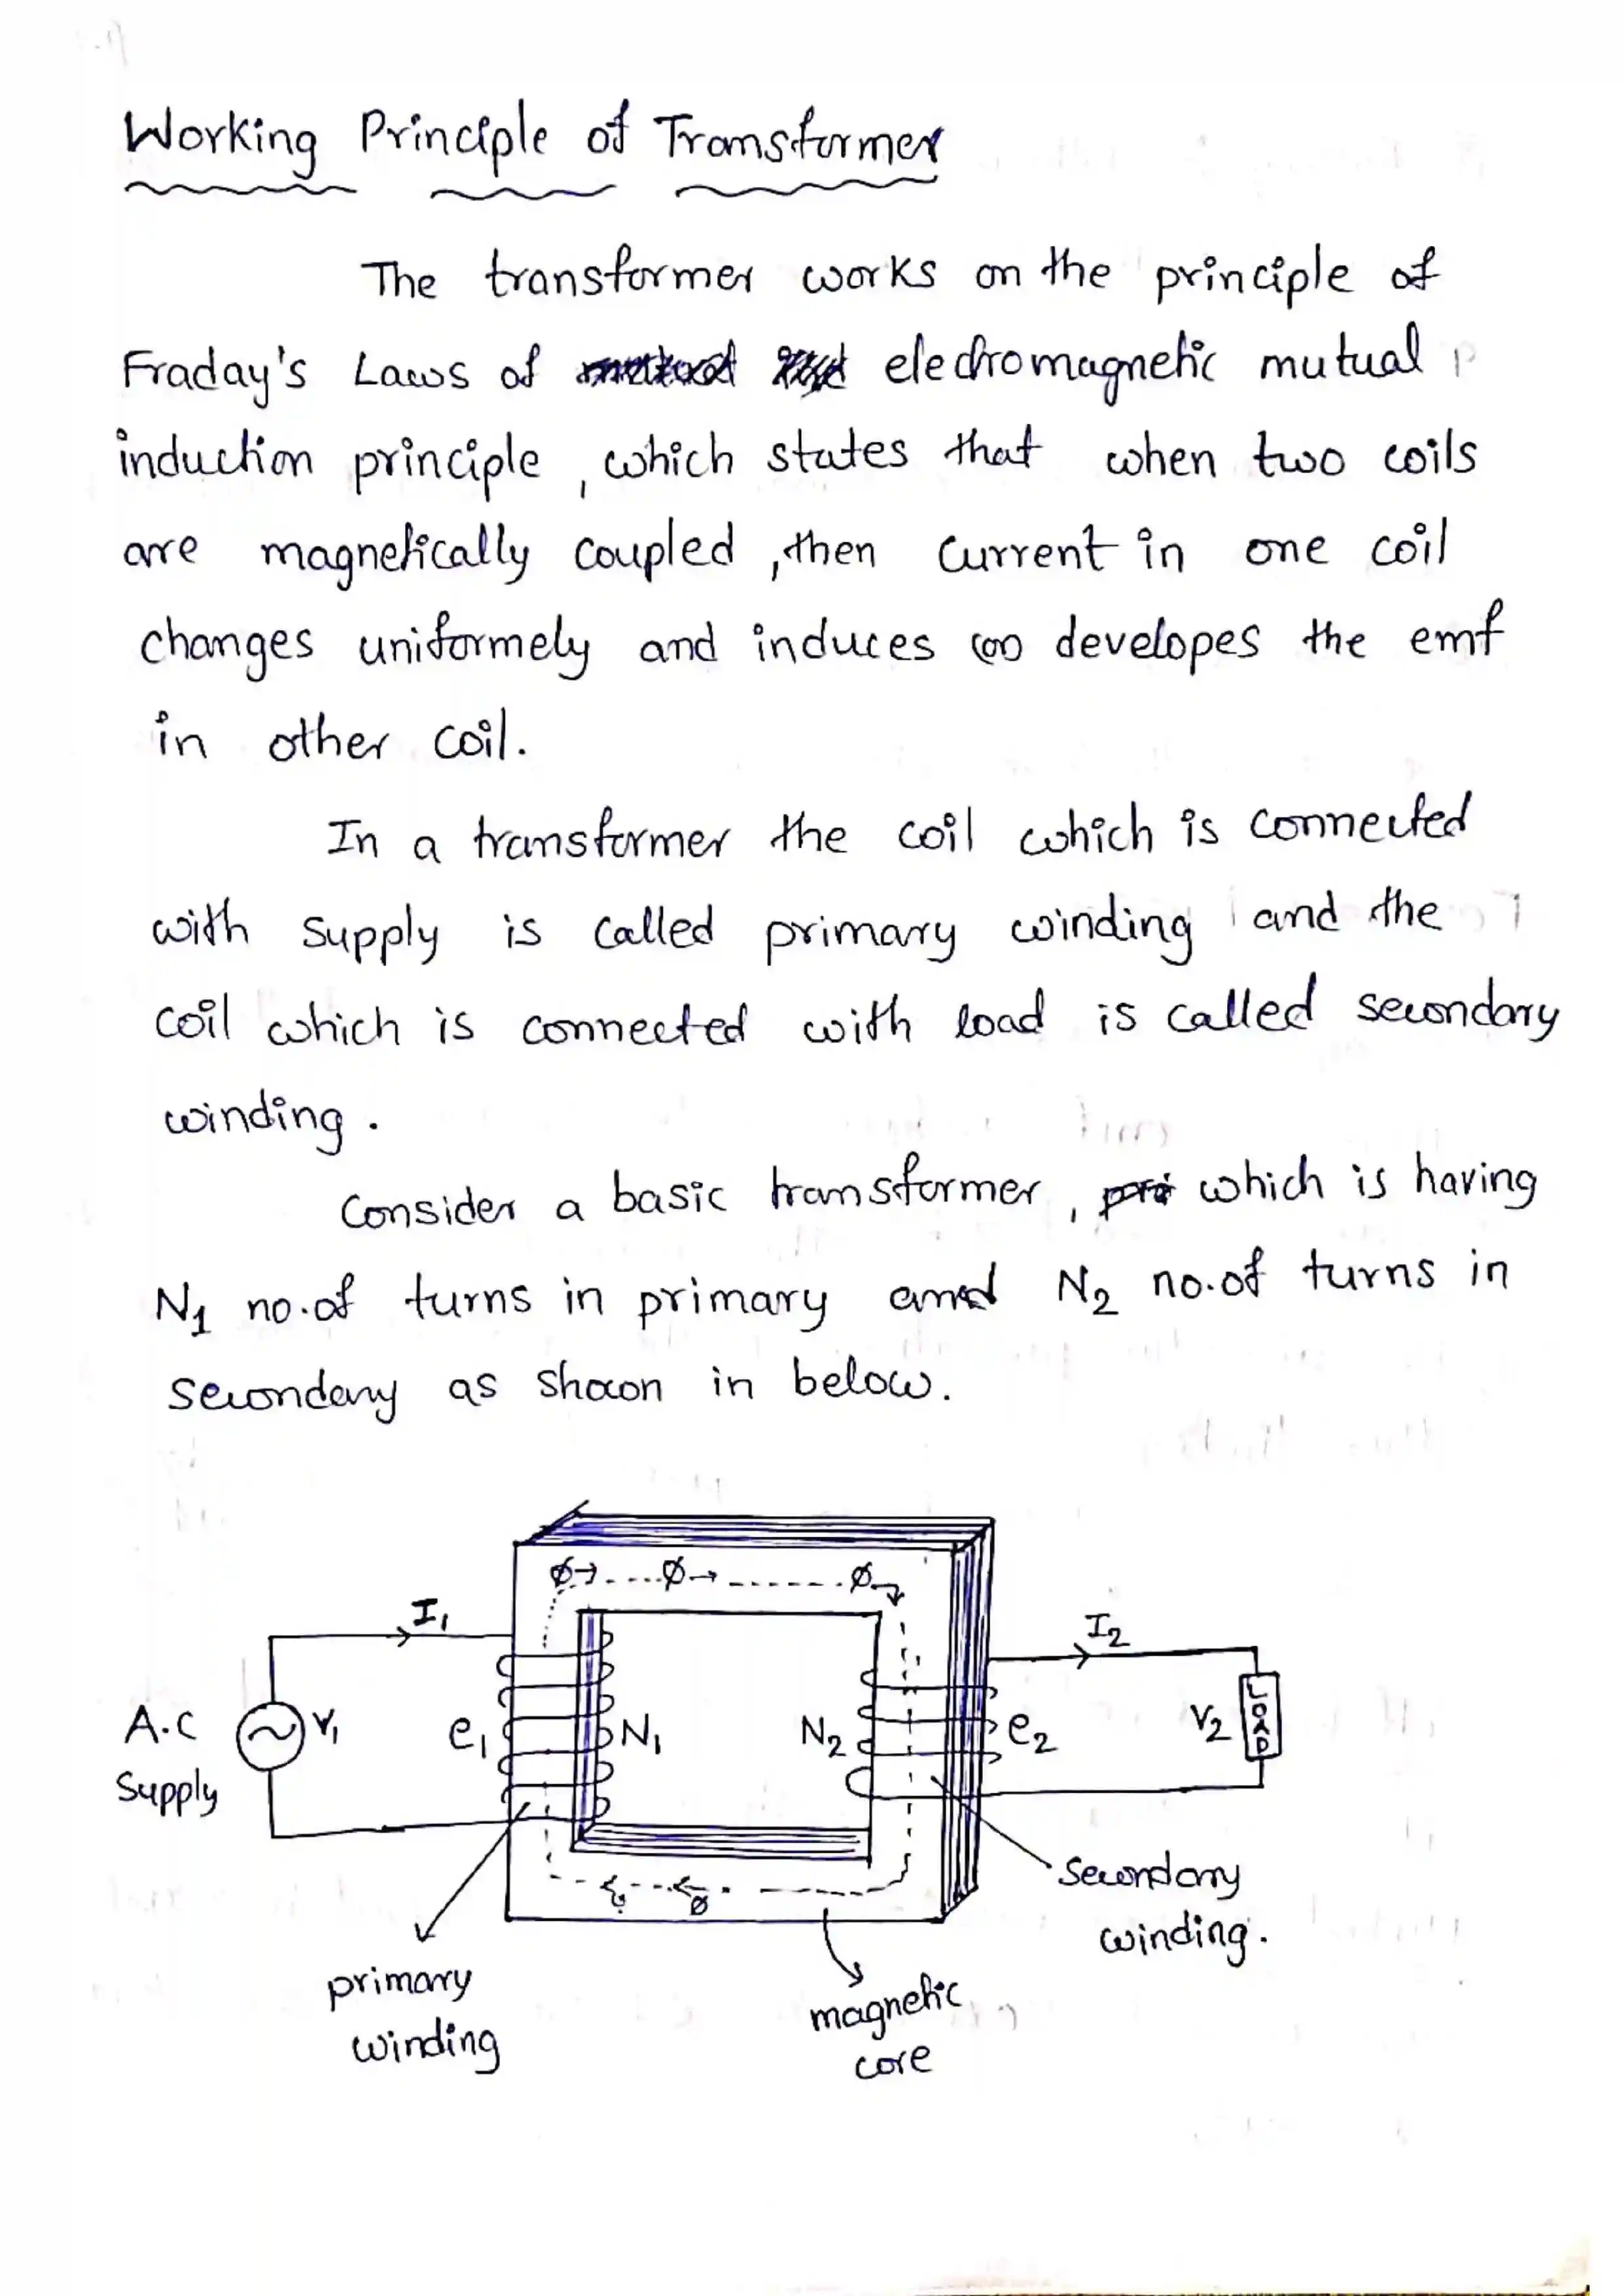 Working Principle of Transformer
The transformer works on the principle of
Fraday's Laws of electromagnetic mutual
induction principle, which states that when two coils
are magnetically coupled, then current in one coil
changes uniformely and induces (or) developes the emf
in other coil.
In a transformer the coil which is connected
with supply is called primary winding and the
coil which is connected with load is called secondary
winding.
Consider a basic transformer, which is having
N1 no.of turns in primary and N2 no.of turns in
secondary as shown in below.
ϕ→ ϕ→ ϕ→
I1
I2
A.C
Supply
V1
e1
N1
N2
e2
V2
LOAD
ϕ
Secondary
winding.
primary
winding
magnetic
core